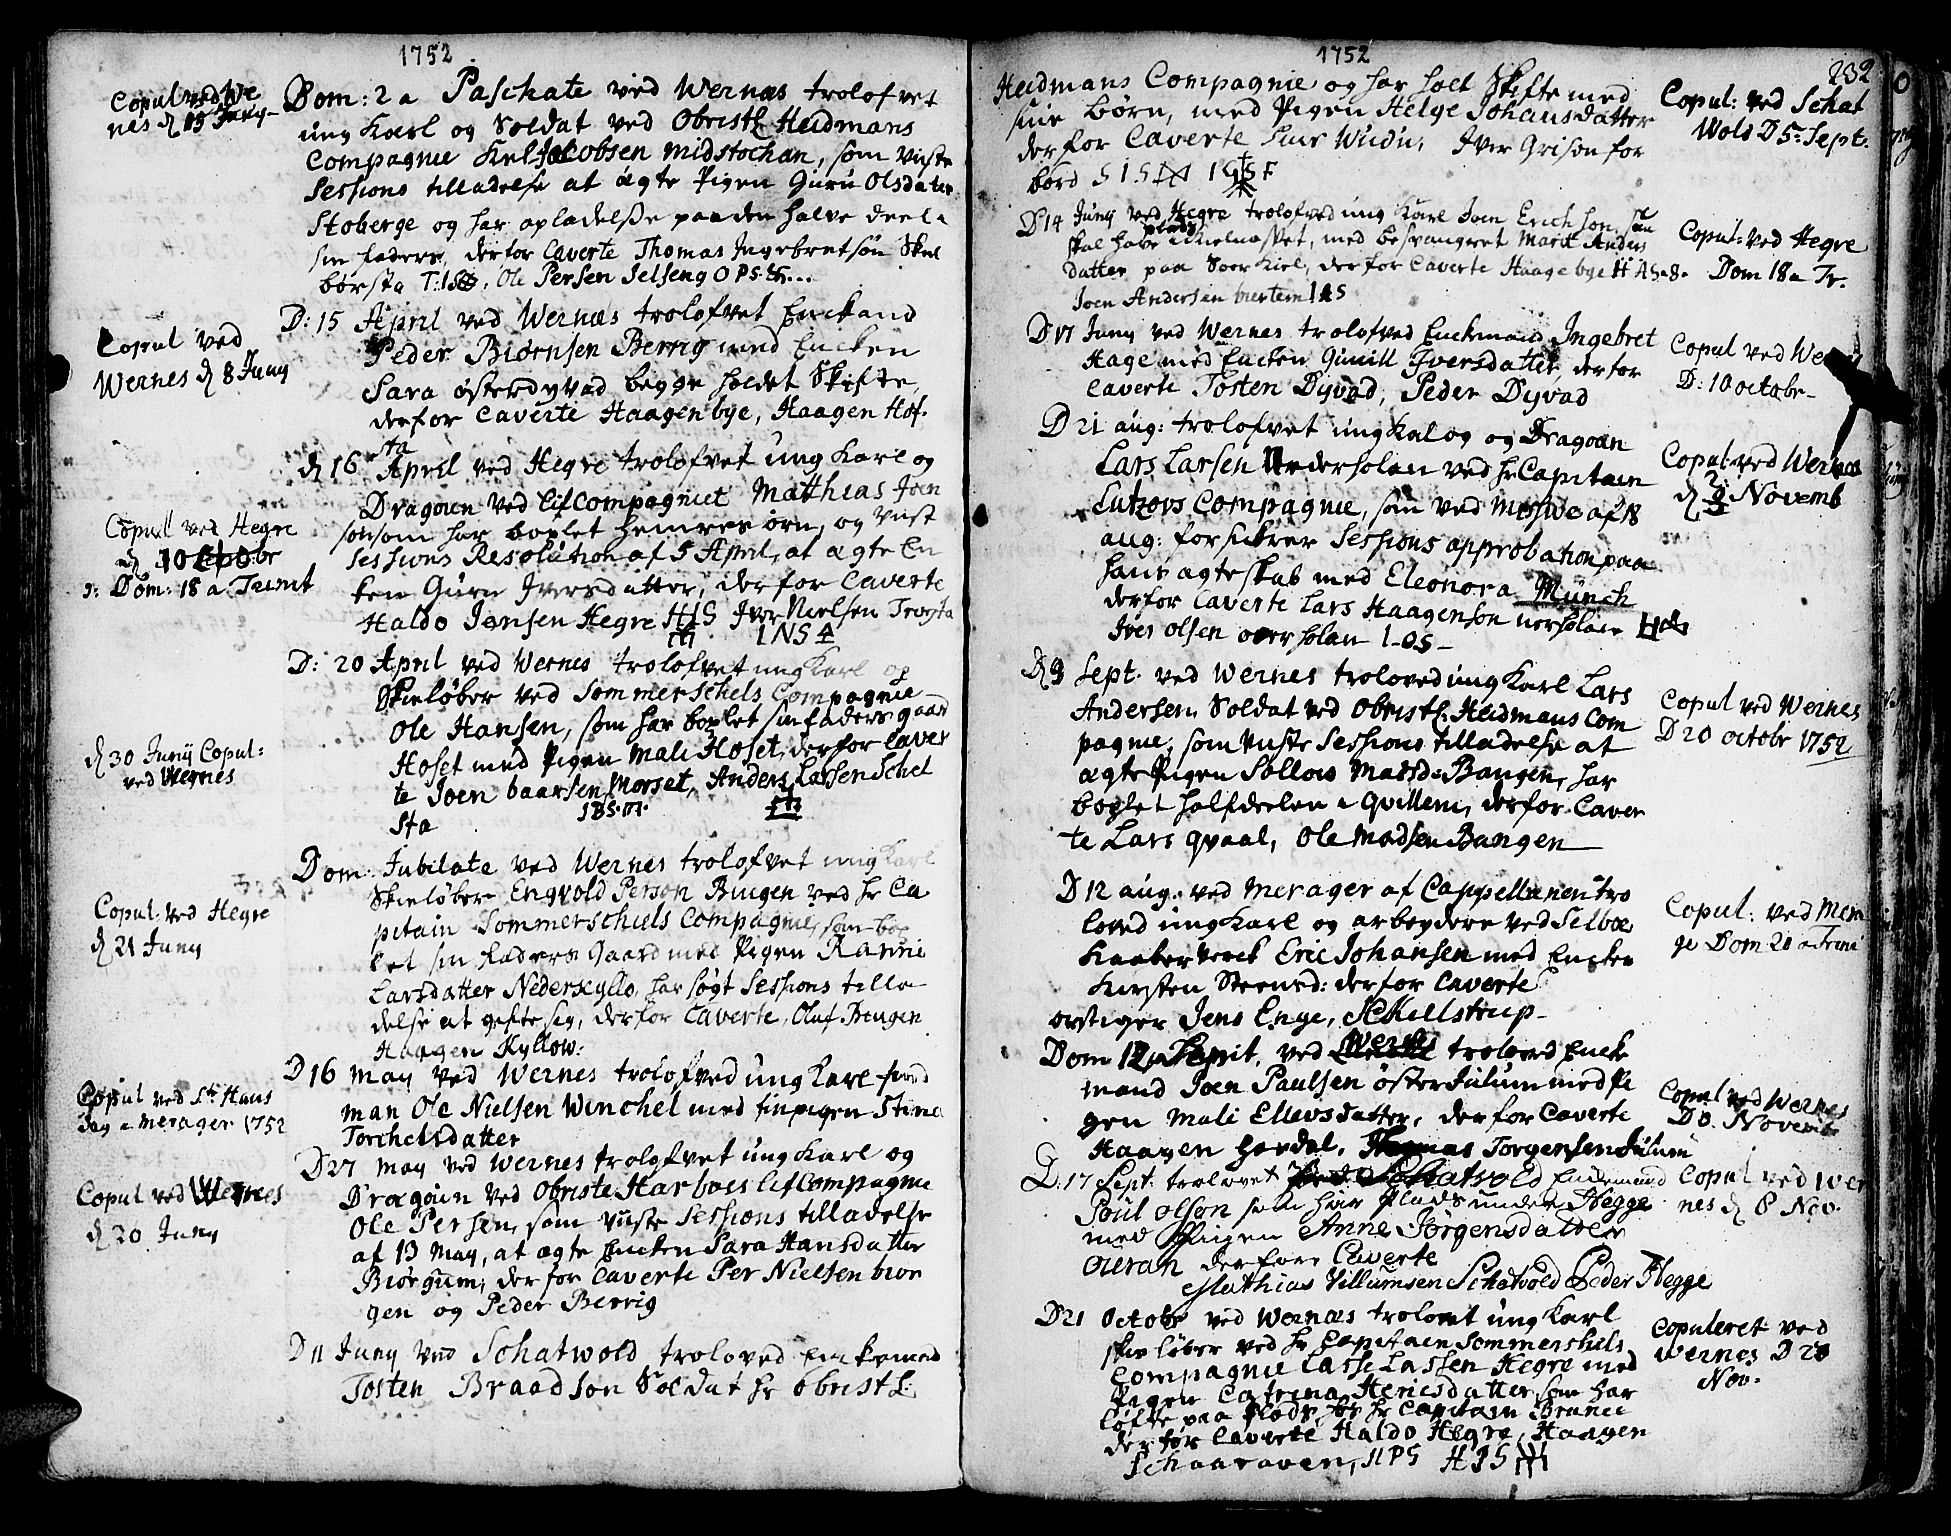 1752
Copul ved We
nes d 15 Juny
Dom: 2 a Paschate ved Wernæs trolofvet
ung Karl og Soldat ved Obristl Heidmans
Compagnie Jacobsen Midstochan, som viste
Sessions tilladelse at ægte Pigen Guru Olsdatter
Stoberge og har opladelsse paa den halve deel
sin faders, derfor Caverte Thomas Ingebretsøn Skiel
børsta Ole Persen Selseng O P S
Copul ved
Wernes d 8 Juny
D: 15 April ved Wernæs trolofvet Enckand
Peder Biørnsen Berrig med Encken
Sara østerdyvad begge holdet Skifte,
derfor Caverte Haagen bye, Haagen Hof
sta
Copul ved Hegre
d 10 Octobr
ↄ: Dom: 18 a Trinit
d 16 April ved Hegre trolofvet ung Karl og
Dragoun ved Lifcompagniet Matthias Joen
sønsom har boxlet Hemre ørn, og viist
Sessions Resolution af 5 April, at ægte En
ken Gurn Iversdatter, derfor Caverte
Haldo Jensen Hegre H I S Iver Nielsen Trøyta
I N S
d 30 Junij Copul:
ved Wernes
D: 20 April ved Wernes trolofvet ung Karl og
Skieløber ved Sommerschels Compagnie
Ole Hansen, som har boxlet sin faders gaard
Hoset med Pigen Mali Hoset, derfor Caver
te Joen baarsen Morset, Anders Larsen Schel
sta I B S M
Copul. ved Hegre
d 21 Juny
Dom: Jubilate ved Wernes trolofvet ung Karl
Skieløber Engvold Person Bingen ved hr Ca
pitain Sommerschiels Compagnie, som box
let sin Faders Gaard med Pigen Ranni
Larsdatter Nederskyllo, har søgt Sessions tilla
delse at gifte sig, derfor Caverte, Oluf Bengen
Haagen Kyllow.
Copul ved St Hans
dag i Merager 1752
D 16 May ved Wernes trolofved ung Karl
man Ole Nielsen Winchel med Pigen Stine
Torchelsdatter
Copul ved Wernes
d 20 Juny
D 27 May ved Wernes trolofvet ung Karl og
Dragoun ved Obriste Harboes Lifcompagnie
Ole Persen, som viiste Sessions tilladelse
af 13 May, at ægte Encken Sara Hansdatter
Biørgum, derfor Caverte Per Nielsen bior
gen og Peder Berrig
D 11 Juny ved Schatwold troloved Enkemand
Tosten Braadson Soldat hr obristl:
1752
232
Heidmans Compagnie og har holt Skifte med
sine børn, med Pigen Helge Johansdatter
derfor Caverte Siur Wudu, Iver Grison for
bord S I S
Copul: ved Schat
Wold D 5. Sept.
D 14 Juny ved Hegre trolofved ung Karl Joen Erichson, som
skal have plads i Kielnæsset, med besvangret Marit Anders
datter paa Soerkiel, derfor Caverte Haage bye H A S
Joen Andersen biertem I A S
Copul: ved Hegre
Dom 18 a Tr.
D 17 Juny ved Wernes trolofved Enckmand Ingebret
Hage med Encken Gunill Iversdatter derfor
Caverte Tosten Dyvad, Peder Dyvad
Copul ved Wernes
D: 10 octobr
D 21 aug: trolofvet ung Kal og og Dragoun
Lars Larsen Nederholan ved hr Capitain
Lutzows Compagnie, som ved Missive af 18
aug: forsikrer Sessions approbation paa
hans ægteskab med Eleonora Münch
derfor Caverte Lars Haagensøn nerholan
Iver Olsen overholan I O S
Copul: ved Wernæs
d 2 Novemb
D 9 Sept. ved Wernes troloved ung Karl Lars
Andersen Soldat ved Obristl. Heidmans Com
pagnie, som viiste Sessions tilladelse at
ægte Pigen Sollow Matsd: Bangen, har
boxlet halfdeelen i Qvillem, derfor Caver
te Lars Qvaal, Ole Madsen Bangen
Copul ved Wernes
D 20 octobr 1752
D 12 aug. ved Merager af Cappellanen tro
loved ung Karl og arbeydere ved Selboe
Kaaberverck Eric Johansen med Encken
Kirsten Steensd: derfor Caverte
orstiger Jens Enge, Schiellstrup
Copul: ved Mera
ge Dom 20 a Trini
Dom 12 a Trinit, ved Wernes troloved Encke
mand Joen Paulsen østerJulum med Pi
gen Mali Ellevsdatter, derfor Caverte
Haagen Hordal, Thomas Torgersen Julum
Copul ved Wernes
D 8. Novembr
D: 17 Sept. trolovet Schatvold Enckemand
Poul Olson som har Plads under Hegge
med Pigen Anne Jørgensdatter
Overan derfore Caverte
Mathias Villumsen Schatvold Peder Hegge
Copul ved Wer
nes d 8 Nov.
D 21 Octobr ved Wernæs trolovet ung Karl
skieløber ved hr Capitain Sommershiels
Compagnie Lasse Lassen Hegre med
Pigen Catrina Henricsdatter, som har
løfte paa Plads hos hr Capitain Brunee
derfor Caverte Haldo Hegre, Haagen
Schaaraven, H P S H I S
Copuleret ved
Wernes D 20
Nov.